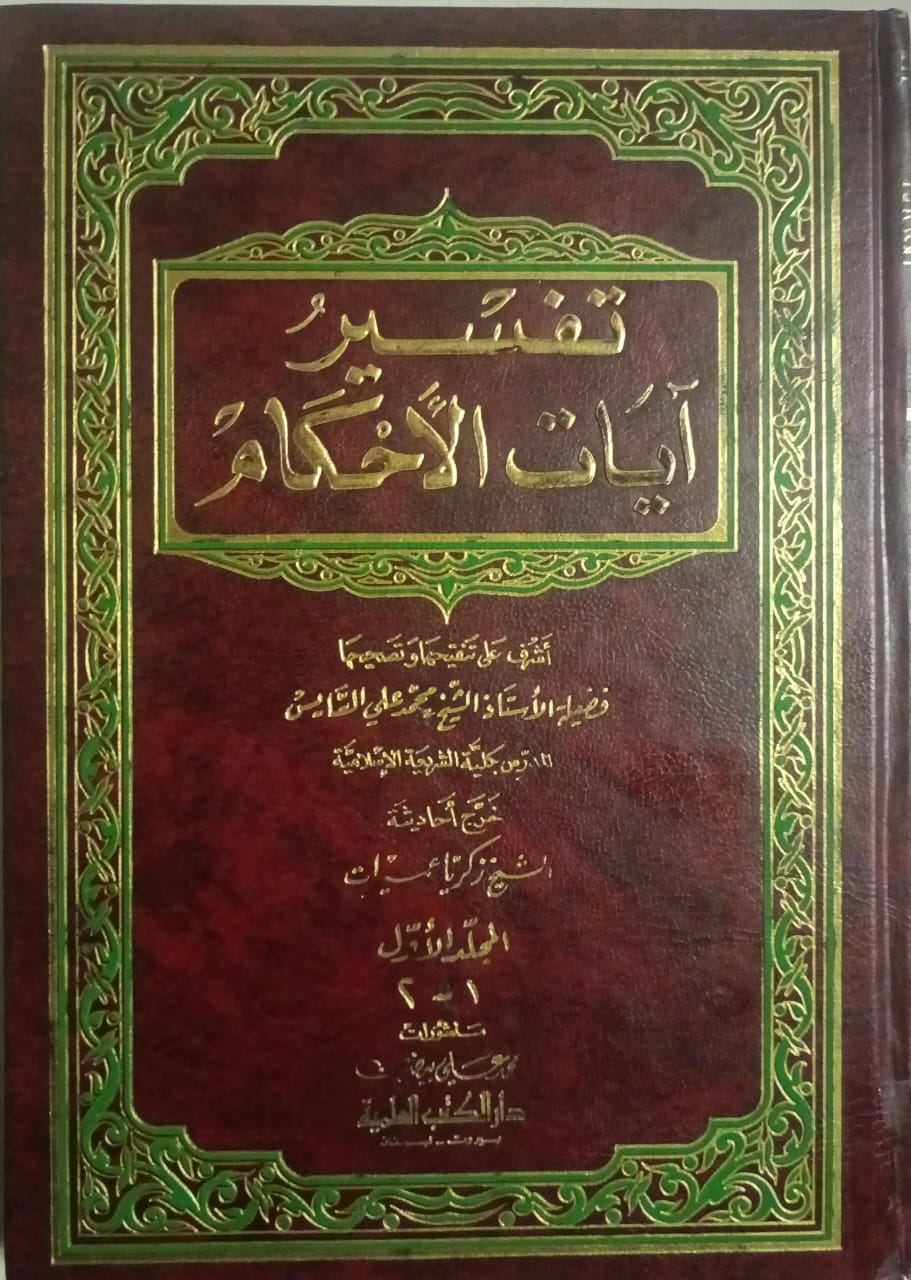 تفسير
آيات الأحكام
أشرف على تنقيحها وتصحيحها
فضيلة الأستاذ الشيخ محمد علي السايس
المدرس بكلية الشريعة الإسلامية
خرج أحاديثه
الشيخ زكريا عميرات
المجلد الأول
١ - ٢
منشورات
محمد علي بيضون
دار الكتب العلمية
بيروت - لبنان